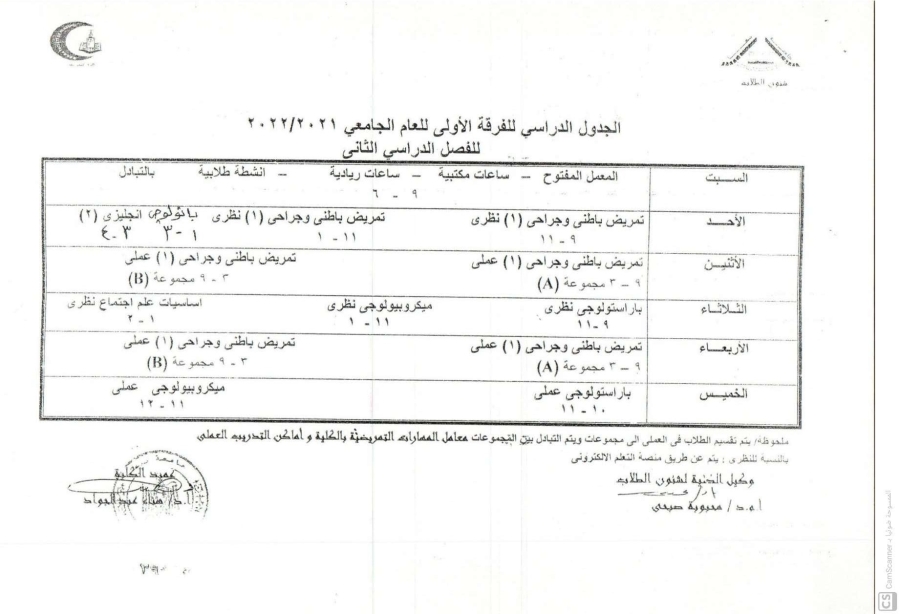 شئون الطلاب
الجدول الدراسي للفرقة الأولى للعام الجامعي ٢٠٢٢/٢٠٢١
للفصل الدراسي الثانى
السبت المعمل المفتوح – ساعات مكتبية – ساعات ريادية – انشطة طلابية بالتبادل
٩ - ٦
الأحد تمريض باطنى وجراحي (١) نظرى تمريض باطنى وجراحي (١) نظرى باثولوجى انجليزى (٢)
٩ - ١١ ١١ - ١ ١ - ٣ ٣ - ٤
الأثنين تمريض باطنى وجراحي (١) عملى تمريض باطنى وجراحي (١) عملى
٩ – ٣ مجموعة (A) ٣ - ٩ مجموعة (B)
الثلاثاء باراستولوجى نظرى ميكروبيولوجى نظرى اساسيات علم اجتماع نظرى
٩ - ١١ ١١ - ١ ١ - ٢
الأربعاء تمريض باطنى وجراحي (١) عملى تمريض باطنى وجراحي (١) عملى
٩ – ٣ مجموعة (A) ٣ - ٩ مجموعة (B)
الخميس باراستولوجى عملى ميكروبيولوجى عملى
١٠ - ١١ ١١ - ١٢
ملحوظة/ يتم تقسيم الطلاب فى العملى الى مجموعات ويتم التبادل بين المجموعات معامل المهارات التمريضية بالكلية و أماكن التدريب العملى
بالنسبة للنظرى : يتم عن طريق منصة التعلم الالكترونى
وكيل الكلية لشئون الطلاب
أ.م.د / محبوبة صبحى
عميد الكلية
أ.د/ هناء عبد الجواد
CS CamScanner